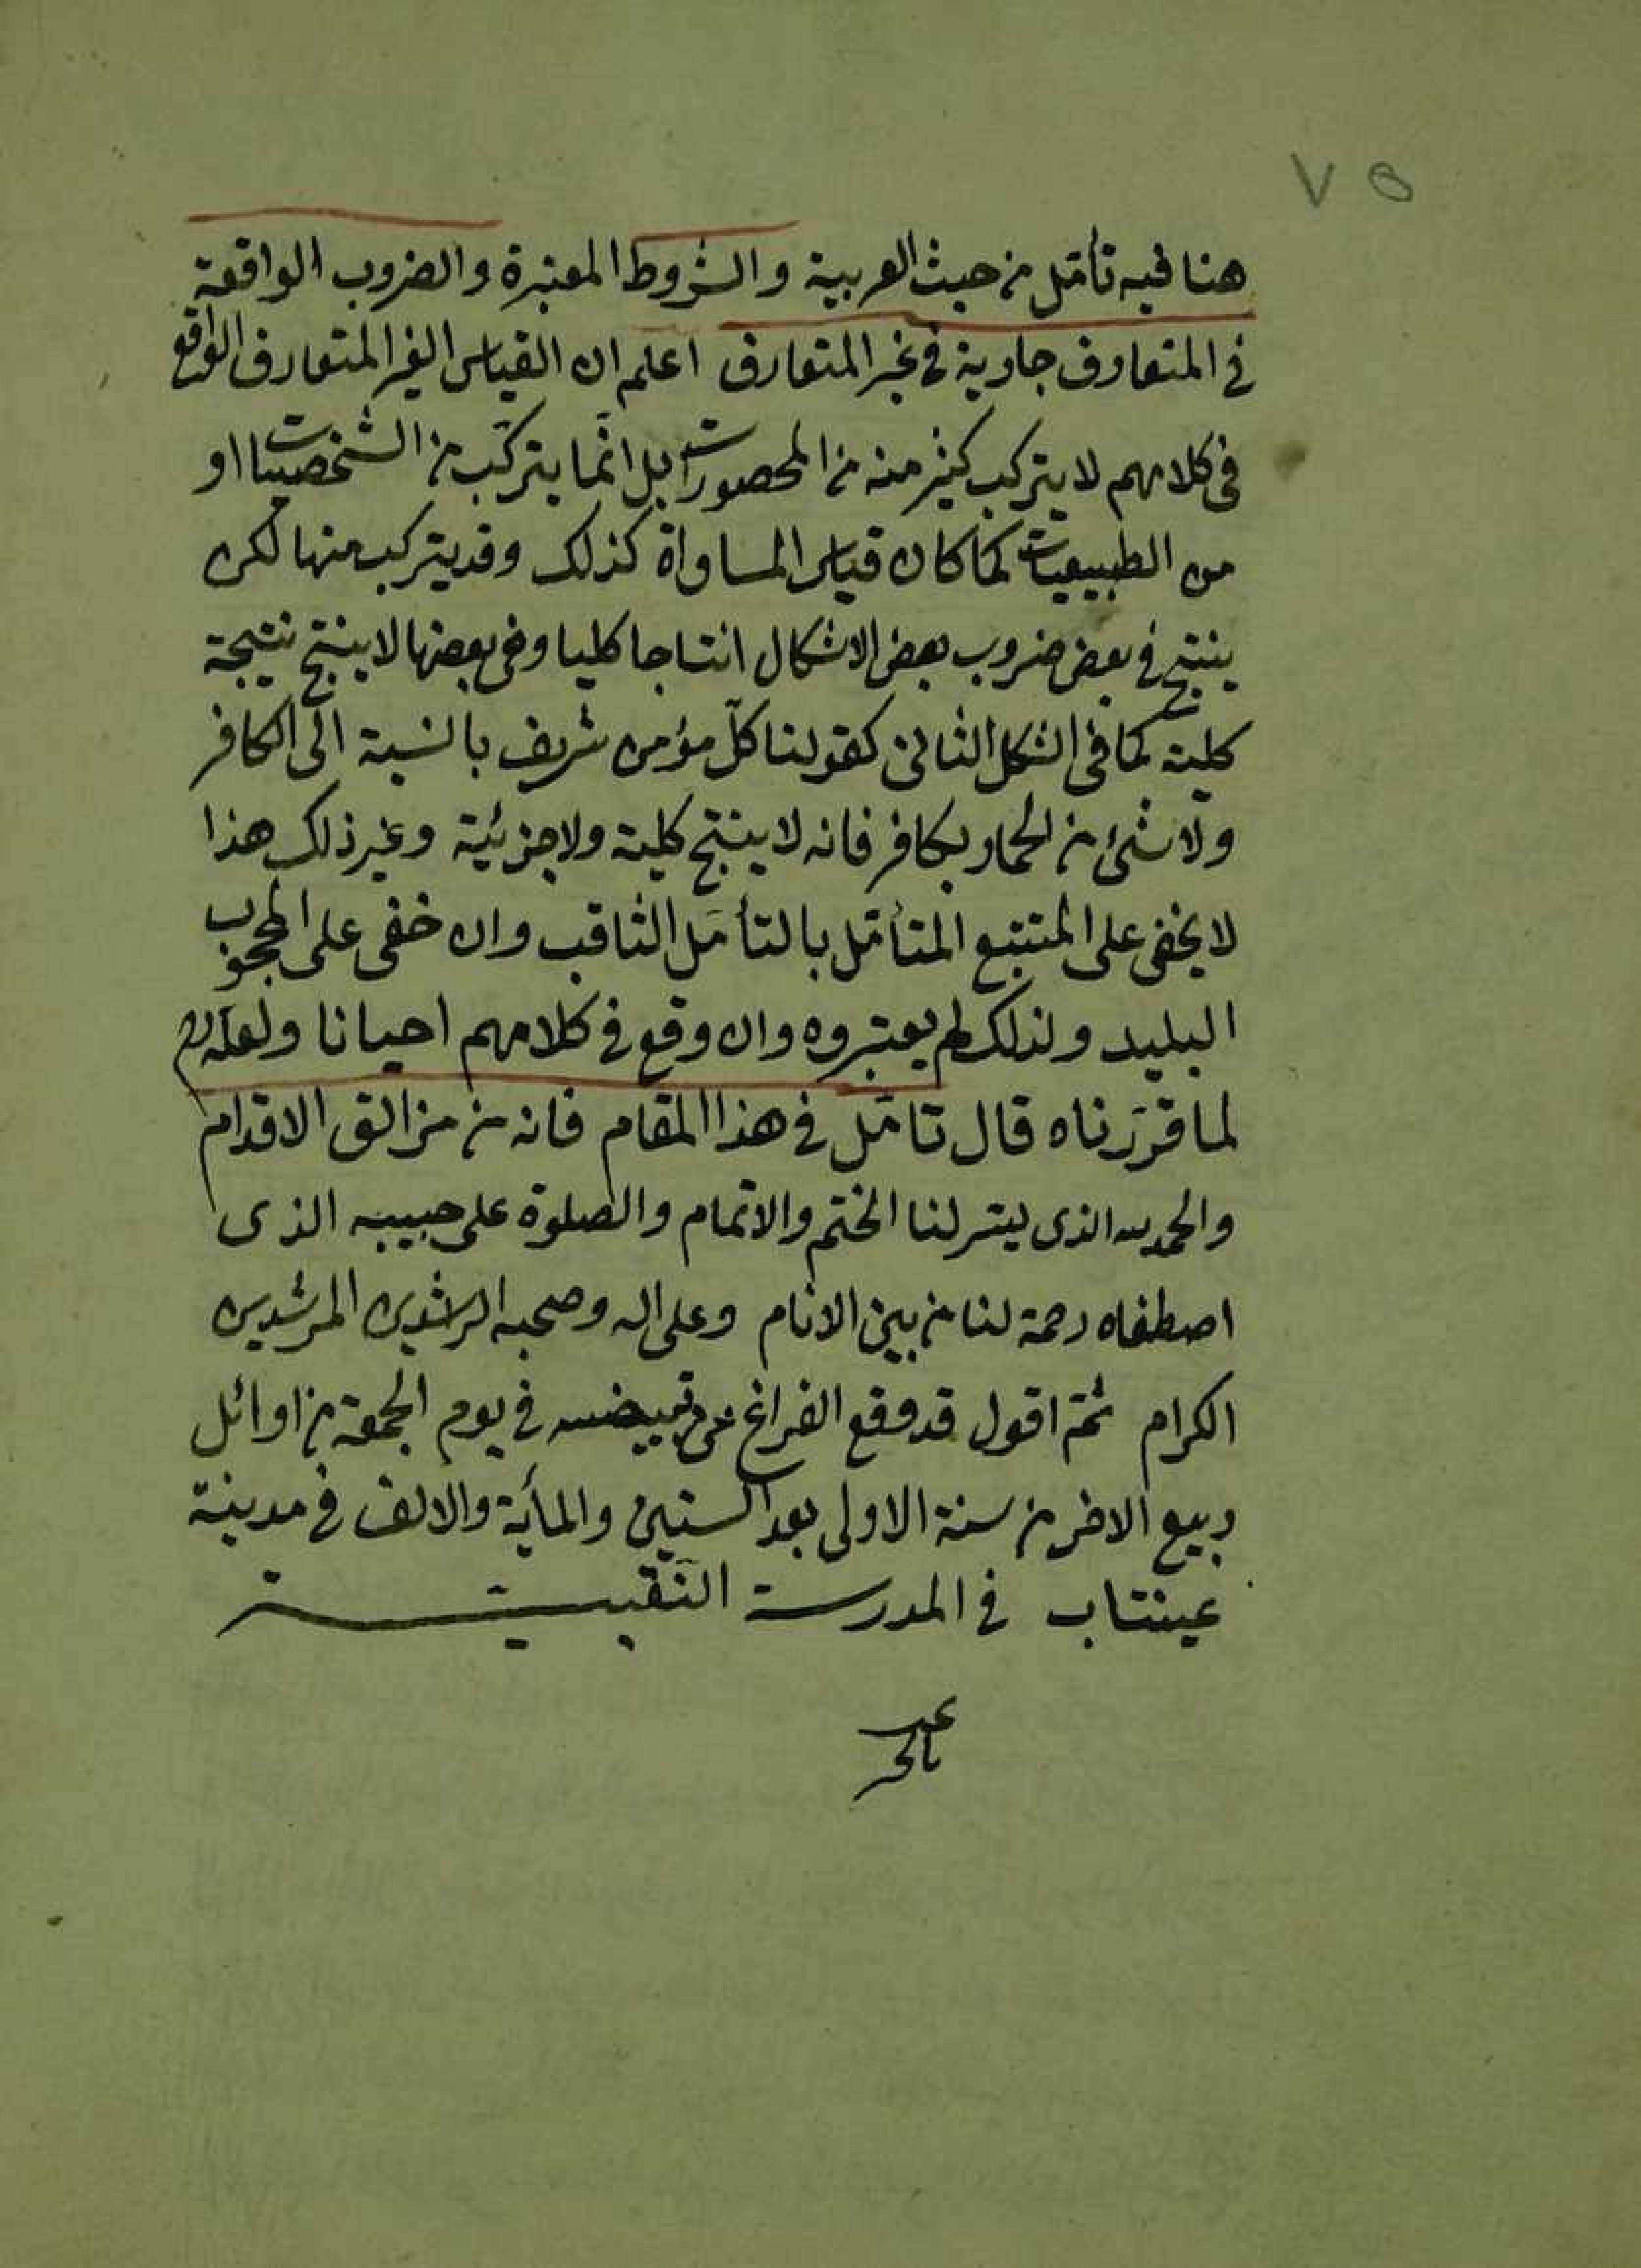 ٧٥
هنا فيه تأمّل من حيث العربية والشروط المعتبرة والضروب الواقعة
في المتعارف جارية في غير المتعارف اعلم ان القياس الغير المتعارف الواقع
في كلامهم لا يتركب كثير منه من المحصورات بل انّما يتركّب من الشخصيات او
من الطبيعيات كما كان قياس المساواة كذلك وقد يتركب منها لكن
ينتج في بعض ضروب بعض الاشكال انتاجا كليا وفي بعضها لا ينتج نتيجة
كلية كما في الشكل الثاني كقولنا كلّ مؤمن شريف بالنسبة الى الكافر
ولا شئ من الحمار بكافر فانه لا ينتج كلية ولا جزئية وغير ذلك هذا
لا يخفى على المتتبع المتأمّل بالتأمّل الثاقب وان خفى على المحجوب
البليد ولذلك لم يعتبروه وان وقع في كلامهم احيانا ولعلّه
لما قرّرناه قال تامّل في هذا المقام فانه من مزالق الاقدام
والحمد لله الذى يسّر لنا الختم والاتمام والصلوة على حبيبه الذى
اصطفاه رحمة لنا من بين الانام وعلى اله وصحبه الراشدين المرشدين
الكرام ثمّ اقول قد وقع الفراغ عن تبييضه في يوم الجمعة من اوائل
ربيع الاخر من سنة الاولى بعد الستين والمأية والالف في مدينة
عينتاب في المدرسة النّقيبيّة